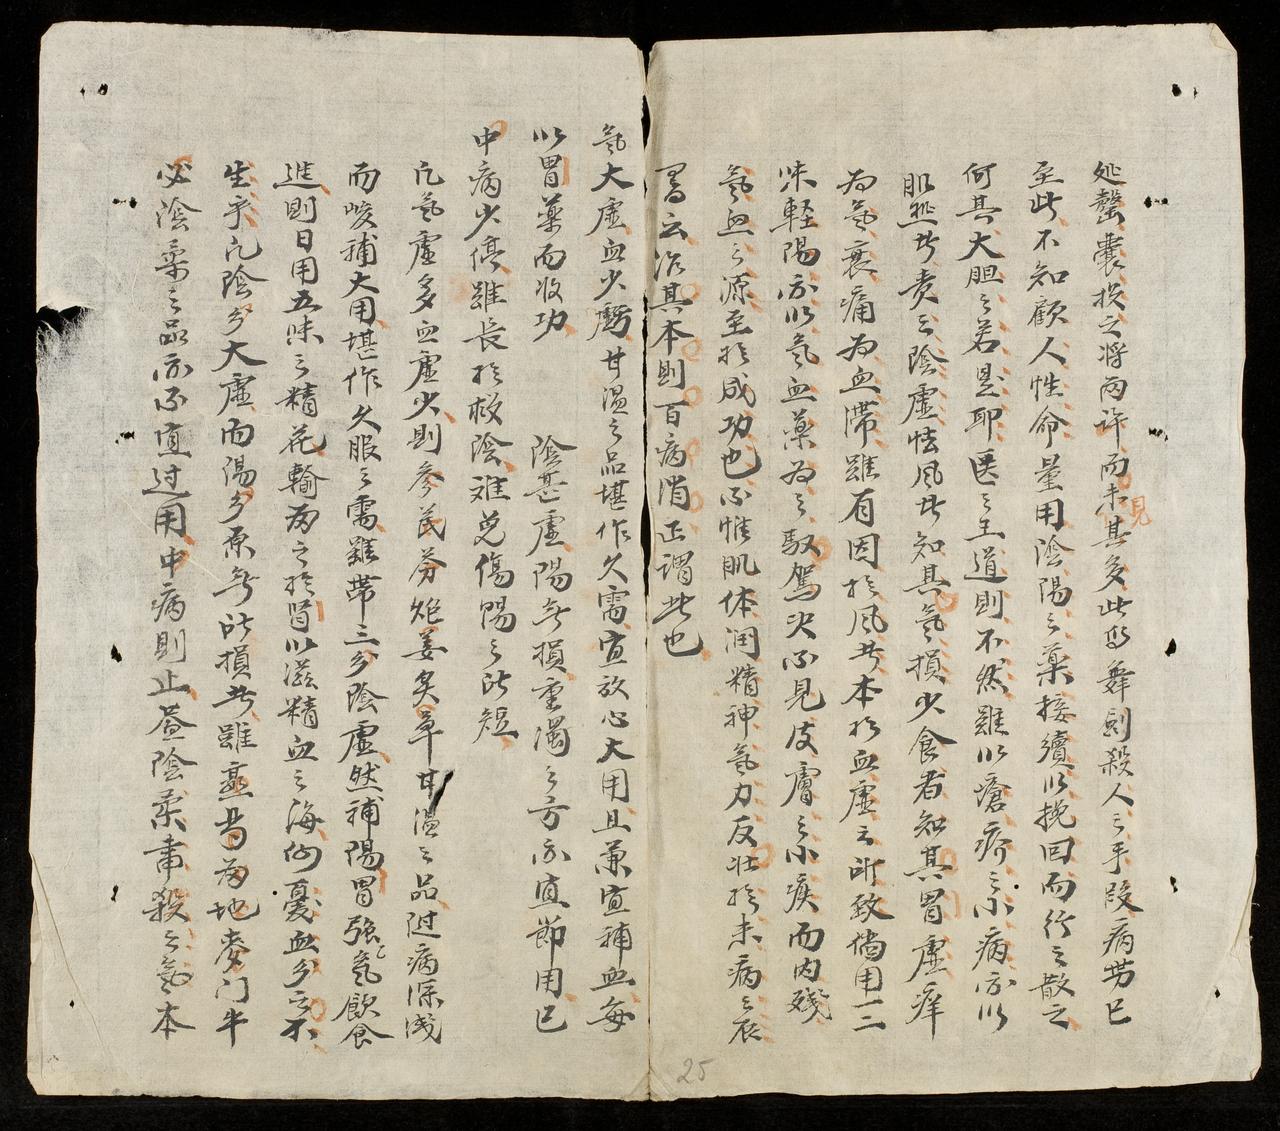 處罄囊投之將兩許而未見其多此曾舞劍殺人之手段病勢已
至此不知顧人性命量用陰陽之藥接續以挽回而行之散之
何其大胆之若是耶医之王道則不然雖以瘡疥之小病亦以
肥熱者責之陰虛怯風者知其氣損少食者知其胃虛痒
為氣衰痛為血滯雖有因於風者本於血虛之所致倘用一二
味輕陽亦以氣血藥為之馭駕決不見皮膚之小疾而內殘
氣血之源至於成功也不惟肌体潤精神氣力反壯於未病之辰
書云治其本則百病消正謂此也
氣大虛血少虧甘溫之品堪作久需宜放心大用且兼宣補血每
以胃藥而收功 陰甚虛陽無損重濁之方亦宜節用已
中病少停雖長於救陰难免傷陽之所短
凡氣虛多血虛少則參芪苓炮姜炙草甘溫之品隨病深淺
而峻補大用堪作久服之需雖帶三分陰虛然補陽胃強氣飲食
進則日用五味之精花輸為之於胃以滋精血之海何憂血分之不
生乎凡陰分大虛而陽分原無所損者雖熟芍為地麥门牛
必陰柔之品亦不宜过用中病則止蓋陰柔肅殺之氣本
25